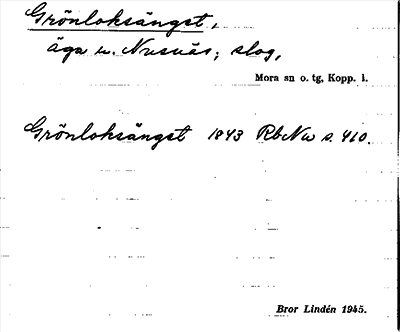 Grönloksängst,
äga u. Nusnäs; slog,
Mora sn o. tg, Kopp. l.
Grönloksängst 1843 RbNu s. 410.
Bror Lindén 1945.